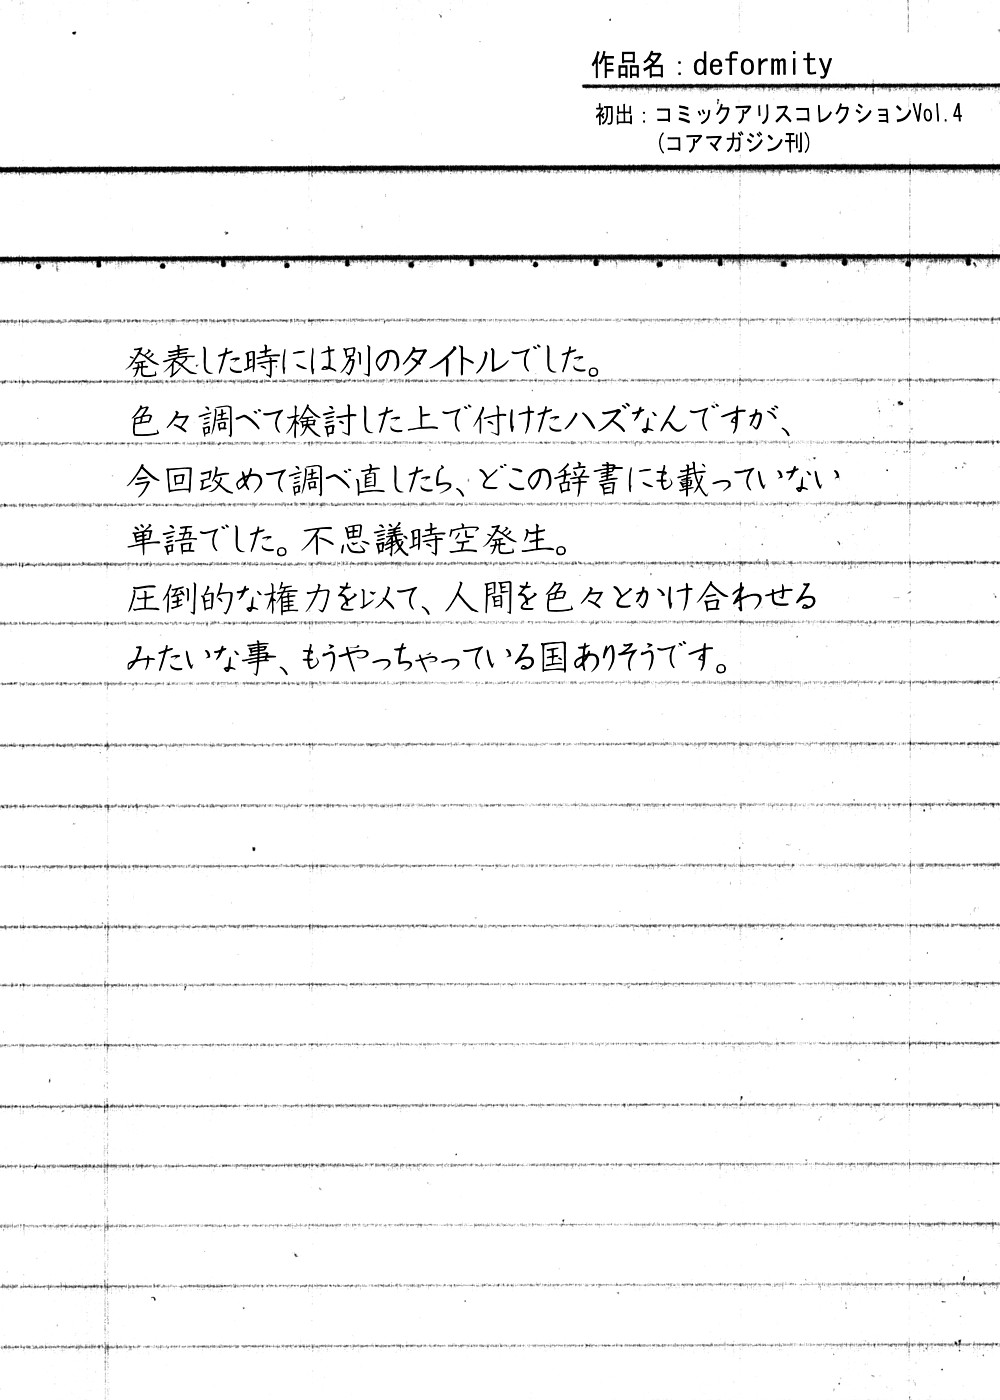 作品名：deformity
初出：コミックアリスコレクションVol.4
(コアマガジン刊)
発表した時には別のタイトルでした。
色々調べて検討した上で付けたハズなんですが、
今回改めて調べ直したら、どこの辞書にも載っていない
単語でした。不思議時空発生。
圧倒的な権力を以て、人間を色々とかけ合わせる
みたいな事、もうやっちゃっている国ありそうです。